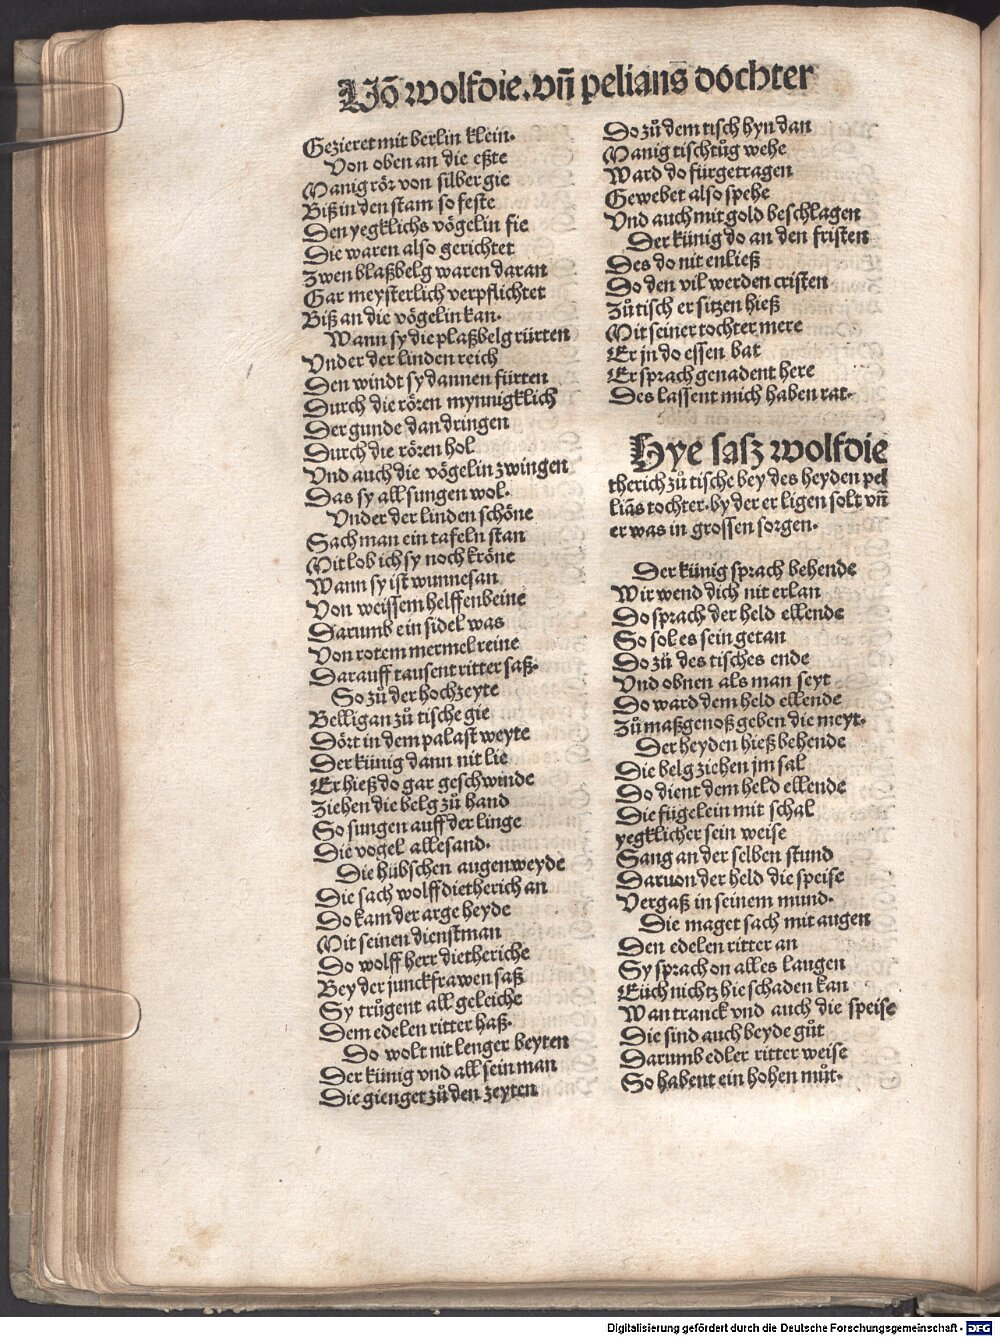 Uõ wolfdie. vñ pelians dochter
Gezieret mit berlin klein.
Von oben an die eßte
Manig rör von silber gie
Biß in den stam so feste
Den yegklichs vögelin fie
Die waren also gerichtet
Zwen blaßbelg waren daran
Gar meysterlich verpflichtet
Biß an die vögelin kan.
Wann sy die plaßbelg rürten
Vnder der linden reich
Den windt sy dannen fürten
Durch die rören mynnigklich
Der gunde dan dringen
Durch die rören hol
Vnd auch die vögelin zwingen
Das sy all sungen wol.
Vnder der linden schöne
Sach man ein tafeln stan
Mit lob ich sy noch kröne
Wann sy ist wunnesan
Von weissem helffenbeine
Darumb ein sidel was
Von rotem mermel reine
Darauff tausent ritter saß.
So zů der hochzeyte
Belligan zů tische gie
Dört in dem palast weyte
Der künig dann nit lie
Er hieß do gar geschwinde
Ziehen die belg zů hand
So sungen auff der linge
Die vogel allesand.
Die hübschen augenweyde
Die sach wolffdietherich an
Do kam der arge heyde
Mit seinen dienstman
Do wolff herr dietheriche
Bey der junckfrawen saß
Sy trůgent all geleiche
Dem edelen ritter haß.
Do wolt nit lenger beyten
Der künig vnd all sein man
Die gienget zů den zeyten
Do zů dem tisch hyn dan
Manig tischtůg wehe
Ward do fürgetragen
Gewebet also spehe
Vnd auch mit gold beschlagen
Der künig do an den fristen
Des do nit enließ
Do den vil werden cristen
Zů tisch er sitzen hieß
Mit seiner tochter mere
Er jn do essen bat
Er sprach genadent here
Des lassent mich haben rat.
Hye sasz wolfdie
therich zů tische bey des heyden pel
liãs tochter. by der er ligen solt vñ
er was in grossen sorgen.
Der künig sprach behende
Wir wend dich nit erlan
Do sprach der held ellende
So sol es sein getan
Do zů des tisches ende
Vnd obnen als man seyt
Do ward dem held ellende
Zů maßgenoß geben die meyt.
Der heyden hieß behende
Die belg ziehen jm sal
Do dient dem held ellende
Die fügelein mit schal
yegklicher sein weise
Sang an der selben stund
Daruon der held die speise
Vergaß in seinem mund.
Die maget sach mit augen
Den edelen ritter an
Sy sprach on alles laugen
Eüch nichtz hie schaden kan
Wan tranck vnd auch die speise
Die sind auch beyde gůt
Darumb edler ritter weise
So habent ein hohen můt.
Digitalisierung gefördert durch die Deutsche Forschungsgemeinschaft - DFG